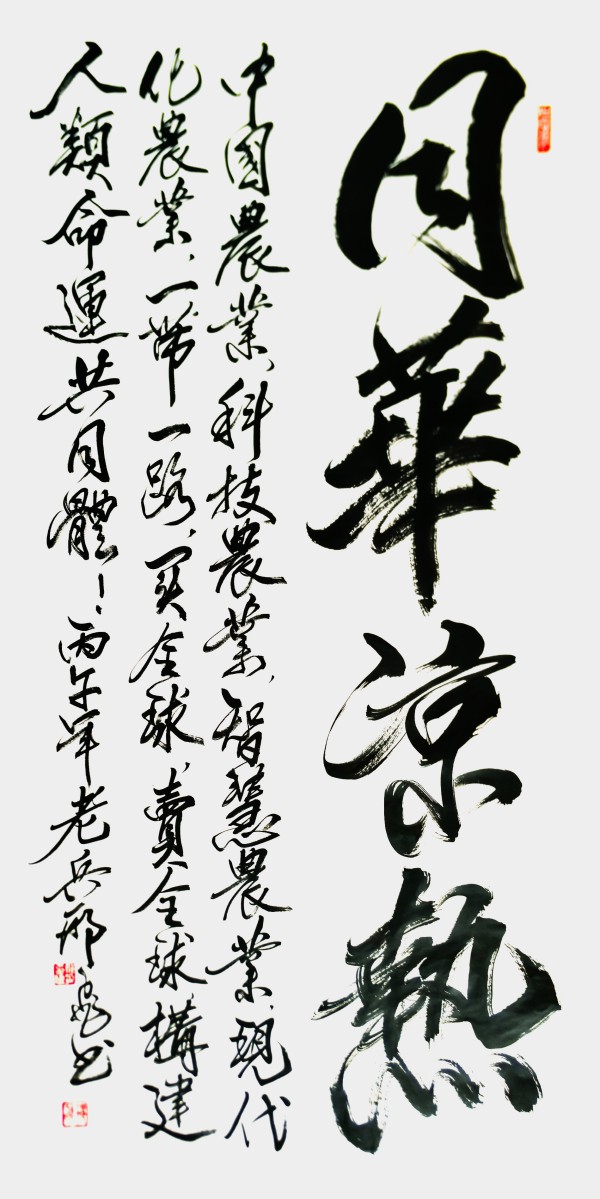 同華涼熱
中國農業、科技農業、智慧農業、現代
化農業、一帶一路、买全球、賣全球構建
人類命運共同體！丙午年老兵邢书